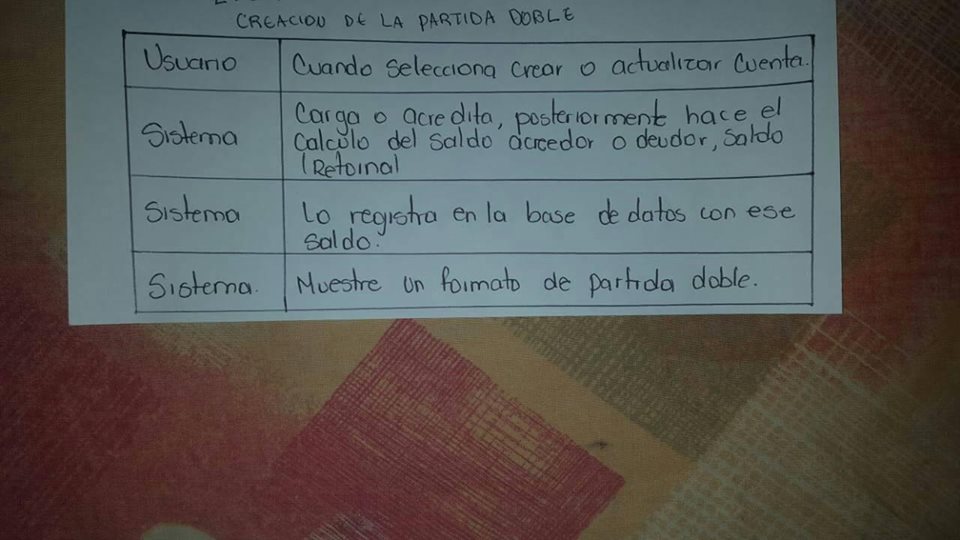 CREACION DE LA PARTIDA DOBLE
Usuario
Cuando selecciona crear o actualizar Cuenta.
Sistema
Carga o acredita, posteriormente hace el
Calculo del saldo acreedor o deudor, saldo
Sistema
Lo registra en la base de datos con ese
saldo.
Sistema.
Muestre un formato de partida doble.